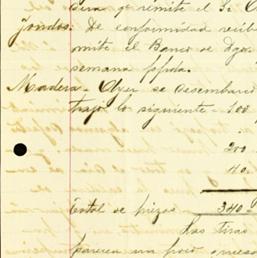 que remite el Sr. C
Fondos. De conformidad recib
mité el Banco de Agos
semana ppda.
Madera - Ayer se desembarco
trajo lo siguiente - 100
200
40
Total de piezas - 340 P
Las tiras
parecen un poco grues